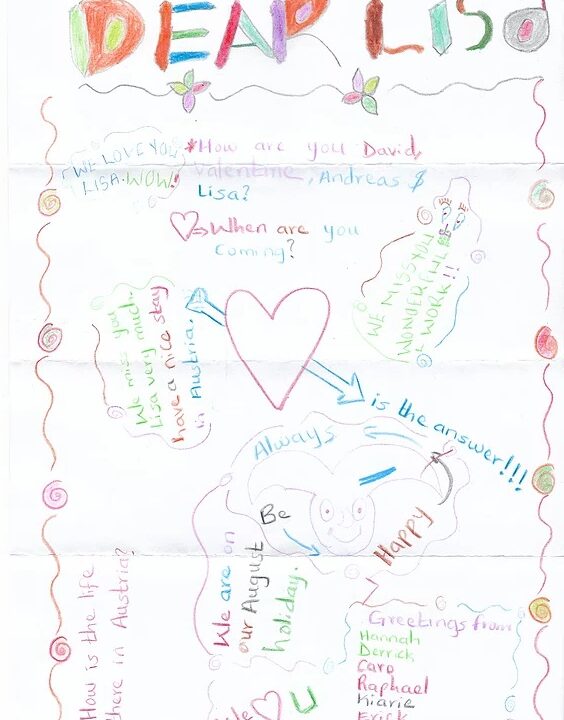 DEAR LISA
WE LOVE YOU
LISA. WOW!
*How are you David,
Valentine, Andreas &
Lisa?
When are you
coming?
WE MISS YOU
WONDERFUL
WORK!!
We miss you
Lisa very much.
have a nice stay
in Austria.
is the answer!!!
Always
Be
Happy
We are on
our August
holiday.
How is the life
there in Austria?
Greetings from
Hannah
Derrick
Caro
Raphael
Kiarie
Erick
U